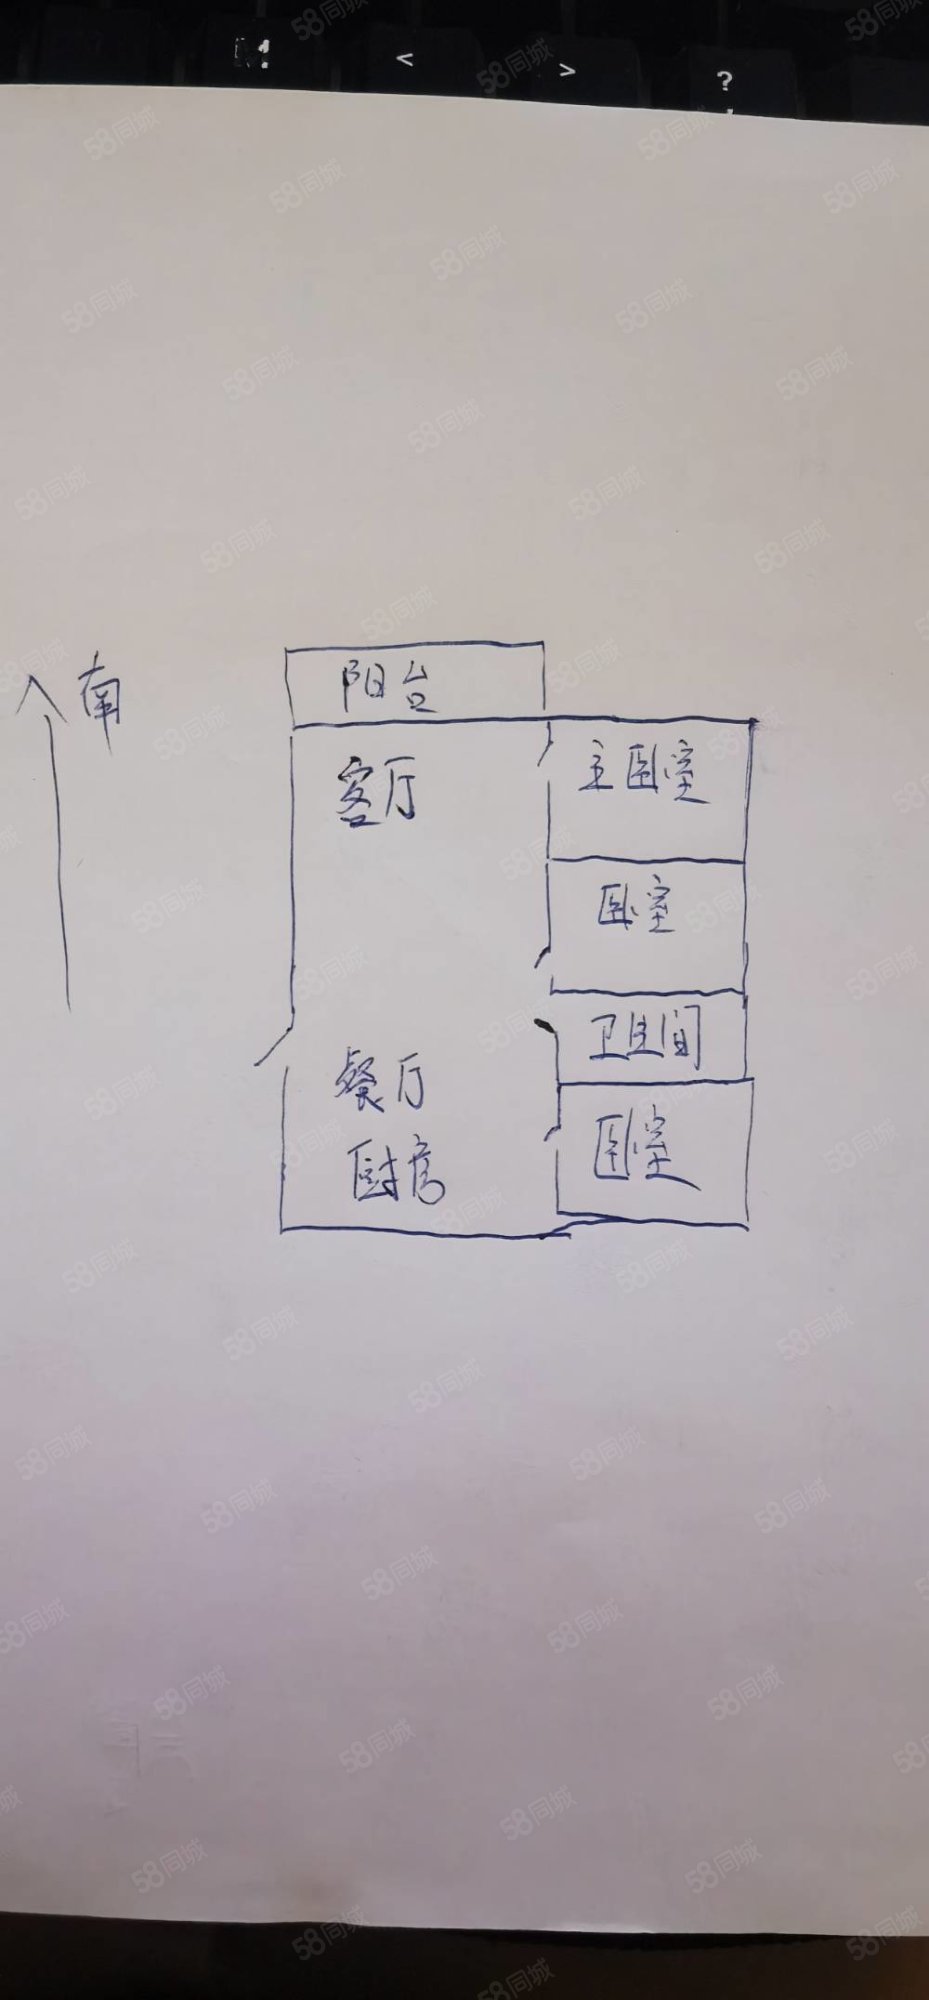 < > ?
南
阳台
客厅
主卧室
卧室
卫生间
餐厅
厨房
卧室
58同城